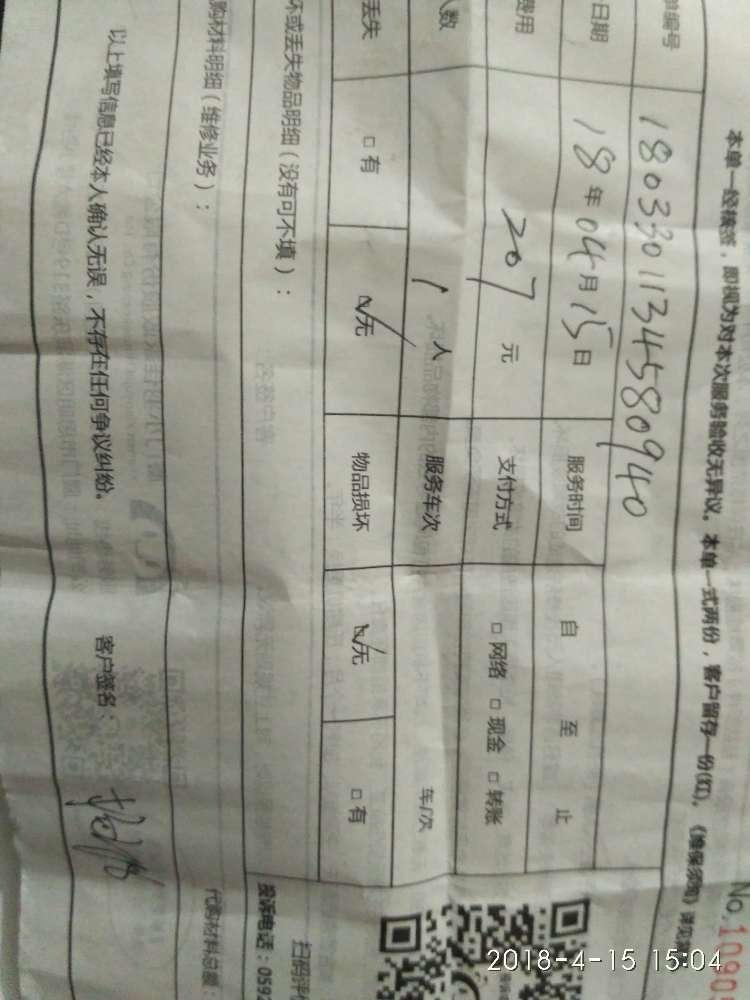 No.1090
本单一经核签，即视为对本次服务验收无异议。本单一式两份，客户留存一份(红)。《维保须知》详见
单编号 1803301134580940
日期 18年04月15日 服务时间 自 至 止
费用 207元 支付方式 □网络 □现金 □转账
人数 1人 服务车次 车/次
丢失 □有 ☑无 物品损坏 ☑无 □有
坏或丢失物品明细（没有可不填）：
扫码评
投诉电话：0592
购材料明细（维修业务）：
代购材料总额：
以上填写信息已经本人确认无误，不存在任何争议纠纷。 客户签名：
2018-4-15 15:04